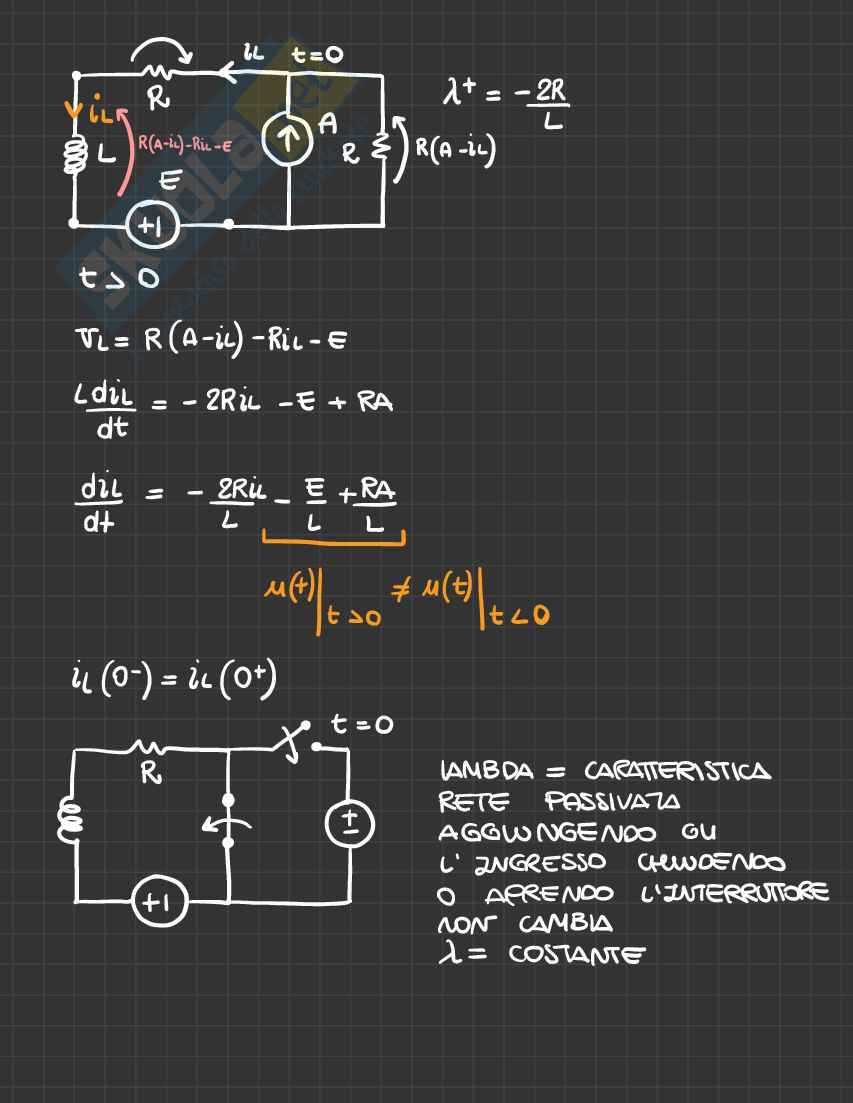 iL t=0
R
λ+ = -2R/L
iL
L
R(A-iL)-RiL-E
A
R
R(A-iL)
E
+1
t > 0
VL = R(A-iL) - RiL - E
LdiL/dt = -2RiL - E + RA
diL/dt = -2RiL/L - E/L + RA/L
u(t)|t>0 ≠ u(t)|t<0
iL(0-) = iL(0+)
t=0
R
+1
LAMBDA = CARATTERISTICA
RETE PASSIVATA
AGGIUNGENDO GLI
L'INGRESSO CHIUDENDO
O APRENDO L'INTERRUTTORE
NON CAMBIA
λ = COSTANTE